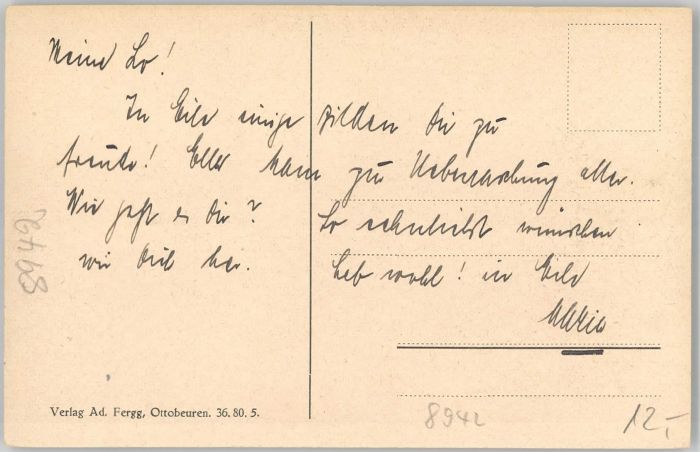 Meine Lo!
In Eile einige Zeilen Dir zu
Freude! Ella kam zur Ueberraschung aller.
Wie geht es Dir? So sehnlichst wünschen
wir Dich her. Leb wohl! in Eile
Maria
8948
Verlag Ad. Fergg, Ottobeuren. 36. 80. 5.
8942
12,-